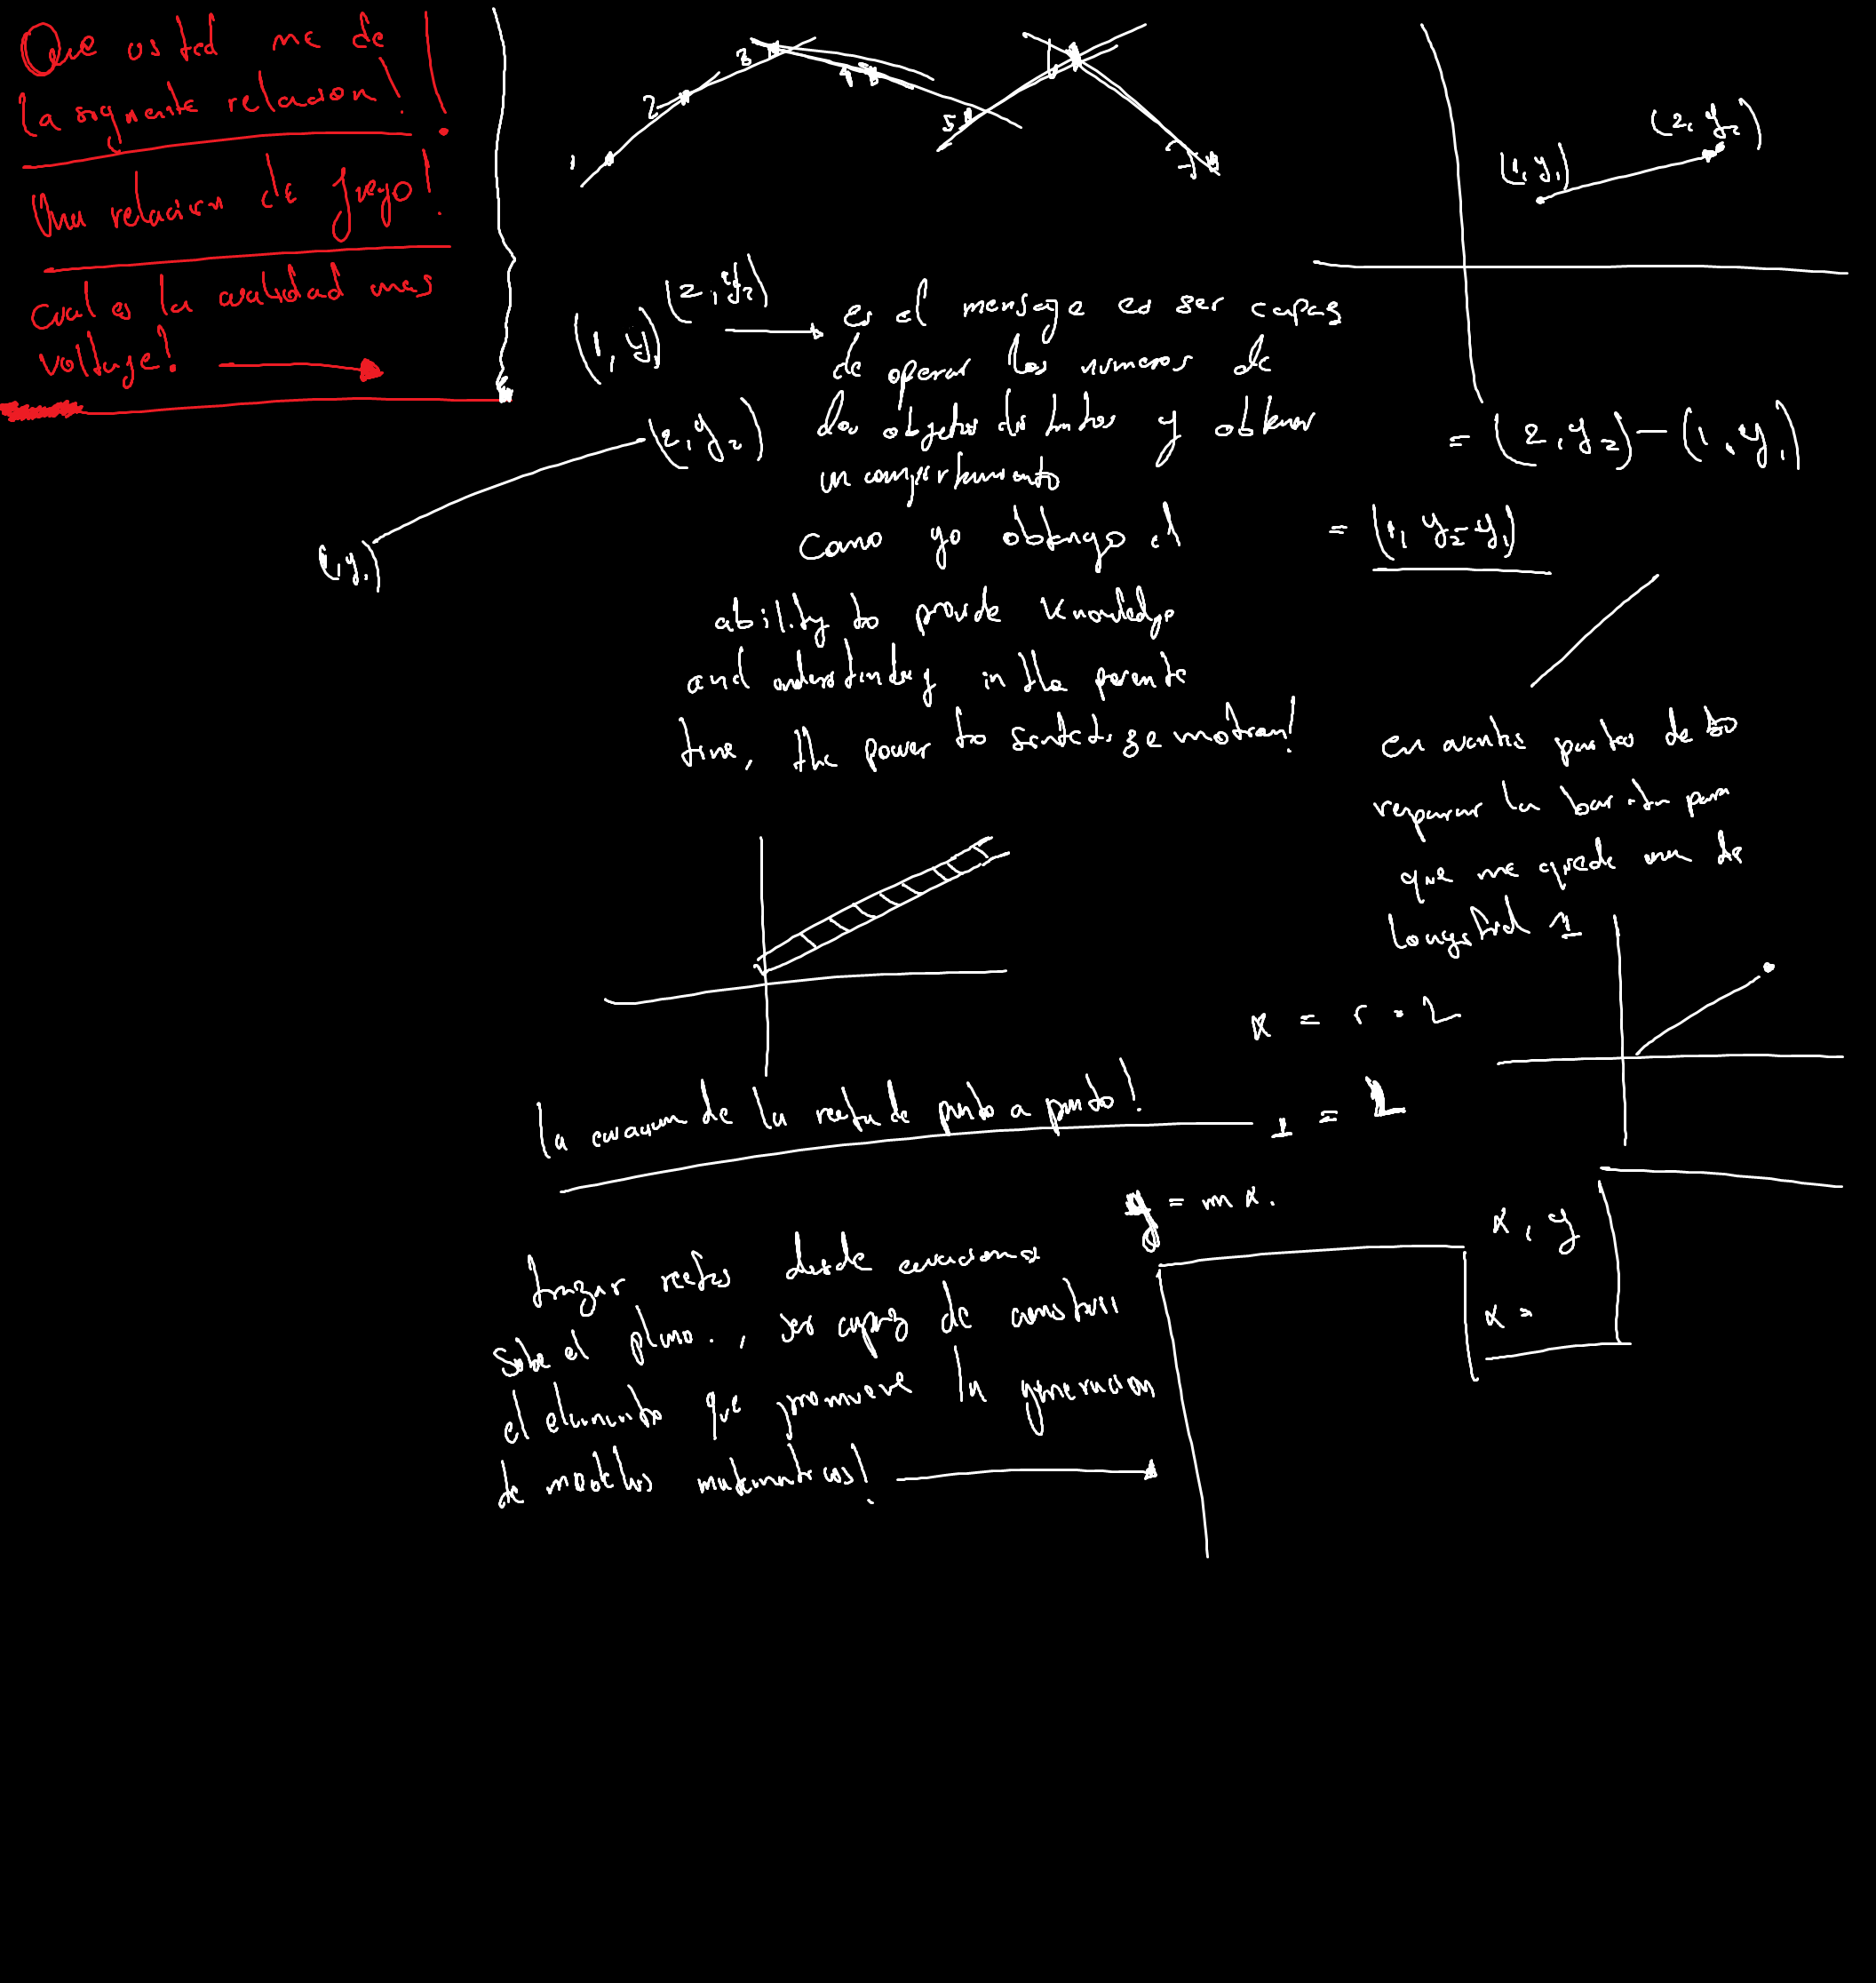 Que usted me de
la siguiente relacion!
Una relacion de juego!
cual es la cualidad mas
voltage!
1 2 3 4 5 7
(1, y₁) (2, y₂)
(1, y₁) (2, y₂)
es el mensage es ser capas
de operar los numeros de
dos objetos distintos y obtener
un comportamiento
Como yo obtengo el
ability to provide knowledge
and understanding in the
time, the power to
(2, y₂)
(1, y₁)
= (2, y₂) - (1, y₁)
= (1, y₂-y₁)
en cuantas partes debo
la barita para
que me quede una de
longitud 1
x = r · L
1 = L
la ecuacion de la recta de punto a punto!
y = m x.
x, y
x =
trazar rectas desde ecuaciones
sobre el plano., ser capaz de construir
el elemento que promueve la generacion
de modelos matematicos!